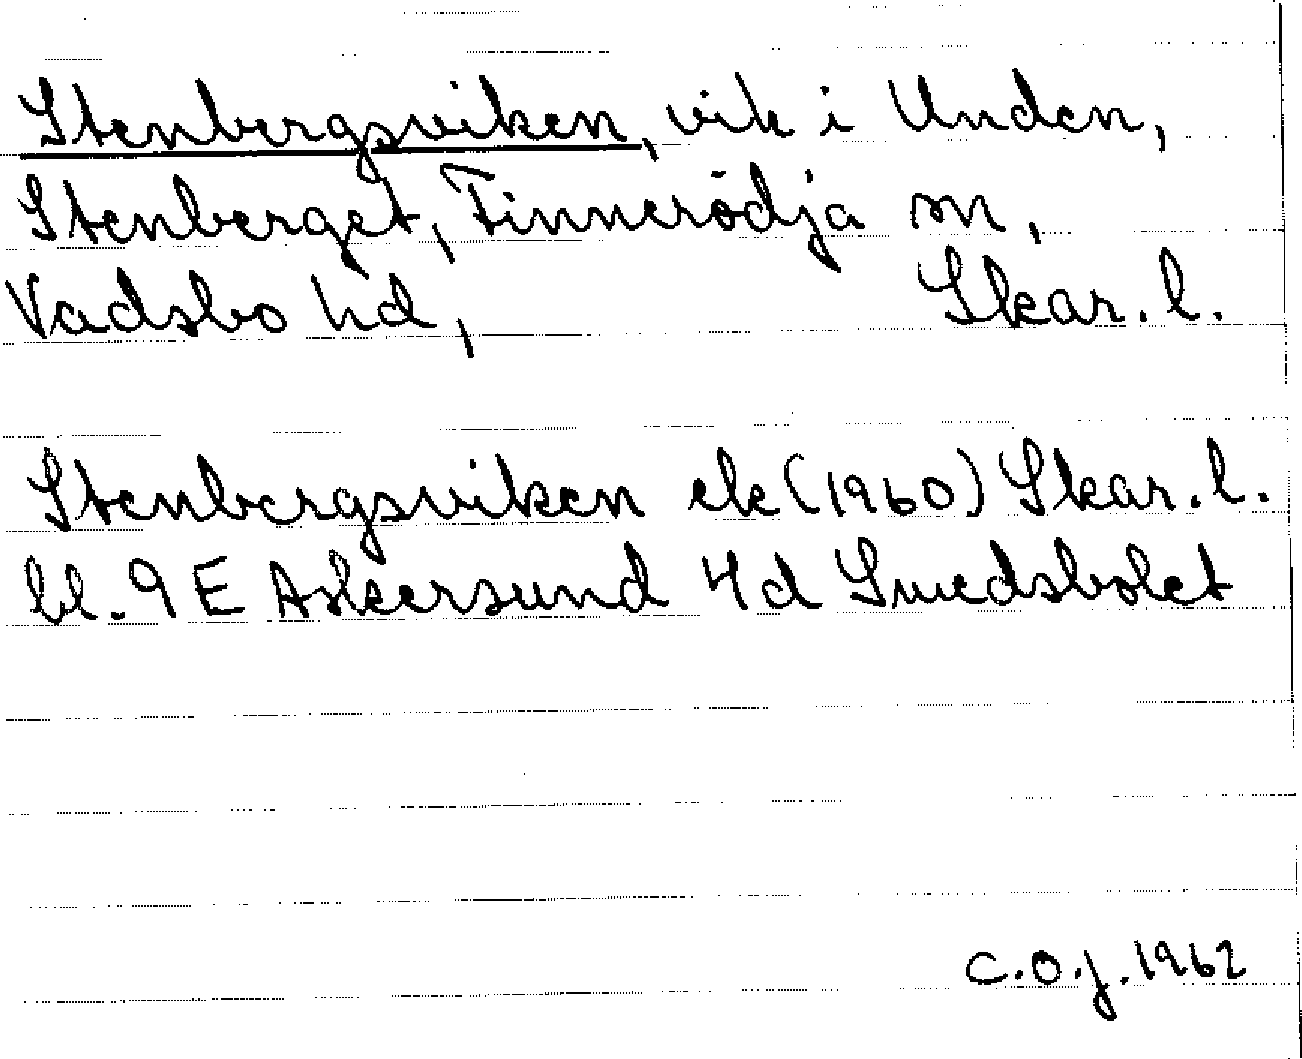 Stenbergsviken, vik i Unden,
Stenberget, Finnerödja sn,
Vadsbo hd, Skar. l.
Stenbergsviken ek (1960) Skar. l.
bl. 9 E Askersund 4d Smedsbolet
C.O.J. 1962